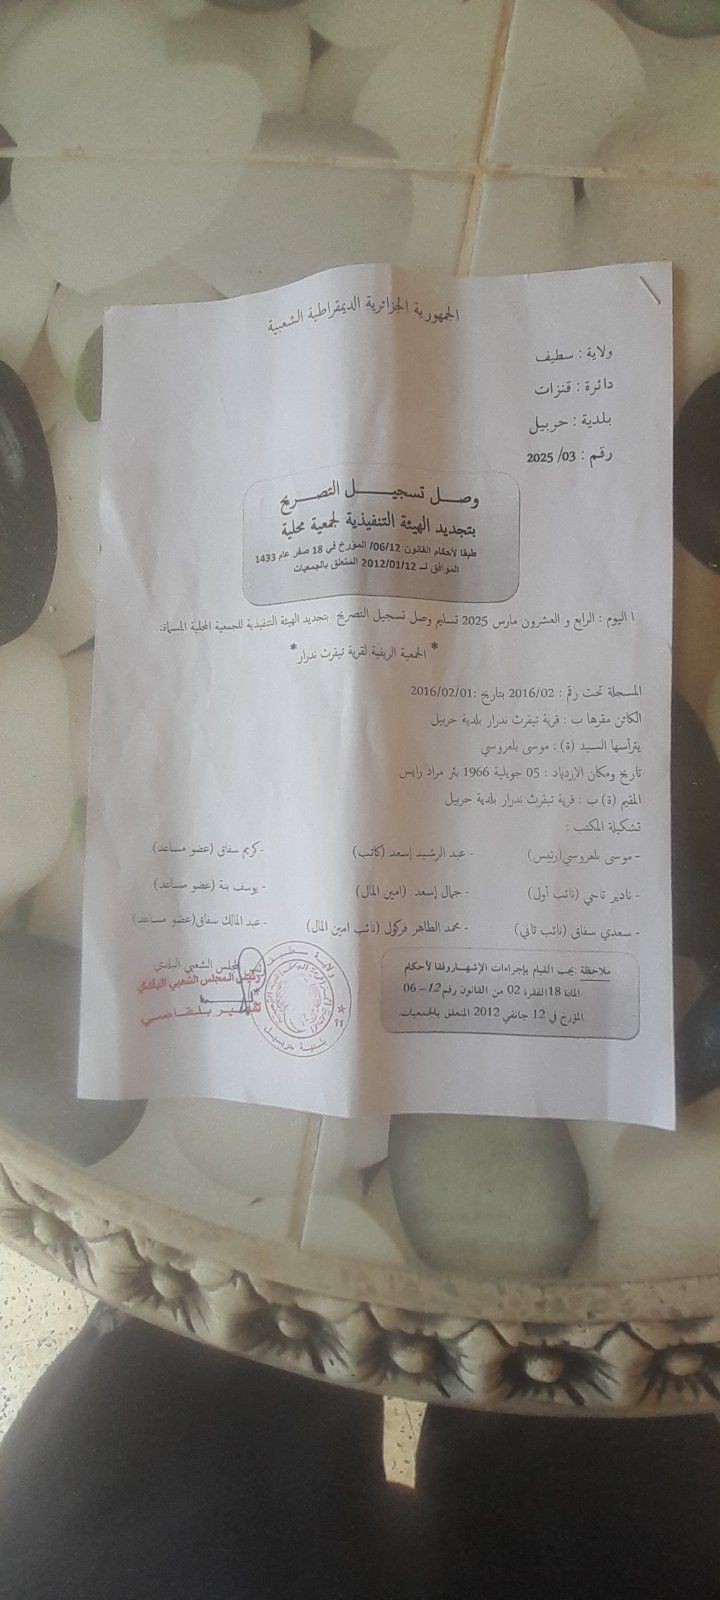 الجمهورية الجزائرية الديمقراطية الشعبية
ولاية : سطيف
دائرة : قنزات
بلدية : حربيل
رقم : 03/ 2025
وصـل تسجيـــل التصـريح
بتجديد الهيئة التنفيذية لجمعية محلية
طبقا لأحكام القانون 06/12/ المؤرخ في 18 صفر عام 1433
الموافق لـ 2012/01/12 المتعلق بالجمعيات
ا اليوم : الرابع و العشرون مارس 2025 تسليم وصل تسجيل التصريح بتجديد الهيئة التنفيذية للجمعية المحلية المسماة:
* الجمعية الريفية لقرية تيقرت ندرار *
المسجلة تحت رقم : 2016/02 بتاريخ :2016/02/01
الكائن مقرها ب : قرية تيقرث ندرار بلدية حربيل
يترأسها السيد (ة) : موسى بلعروسي
تاريخ ومكان الإزدياد : 05 جويلية 1966 بئر مراد رايس
المقيم (ة) ب : قرية تيقرث ندرار بلدية حربيل
تشكيلة المكتب :
- موسى بلعروسي(رئيس) - عبد الرشيد إسعد (كاتب) - كريم سفاق (عضو مساعد)
- نادير تاحي (نائب أول) - جمال إسعد (امين المال) - يوسف بنة (عضو مساعد)
- سعدي سفاق (نائب ثاني) - محمد الطاهر فركول (نائب امين المال) - عبد المالك سفاق(عضو مساعد)
ملاحظة :يجب القيام بإجراءات الإشهار وفقا لأحكام
المادة 18 الفقرة 02 من القانون رقم 12– 06
المؤرخ في 12 جانفي 2012 المتعلق بالجمعيات
المجلس الشعبي البلدي
رئيس المجلس الشعبي البلدي
بلقاضي
ولاية سطيف
بلدية حربيل
11